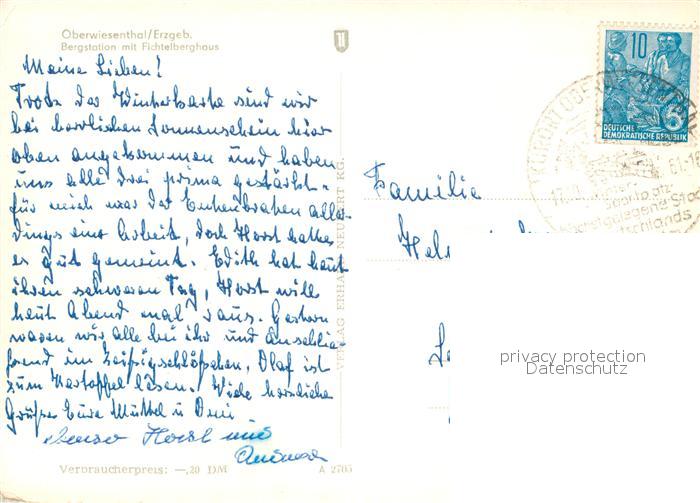 Oberwiesenthal/Erzgeb.
Bergstation mit Fichtelberghaus
Meine Lieben!
Trotz der Winterkarte sind wir
bei herrlichen Sonnenschein hier
oben angekommen und haben
uns alle drei prima gestärkt.
für mich war der Entenbraten aller-
dings eine Arbeit, doch Horst hat es
es gut gemeint. Edith hat heut
ihren schweren Tag, Horst will
heut Abend mal raus. Gestern
waren wir alle bei ihr und anschlie-
ßend im Zeisigschlößchen, Olaf ist
zum Kartoffel lesen. Viele herzliche
Grüße Eure Muttel u
Horst und
Verbraucherpreis: —,20 DM
A 2705
VERLAG ERHARD NEUBERT KG.
10
DEUTSCHE
DEMOKRATISCHE REPUBLIK
KURORT OBERWIESENTHAL
61-18
17
Sportplatz
höchstgelegene Stadt
Deutschlands
Familie
privacy protection
Datenschutz